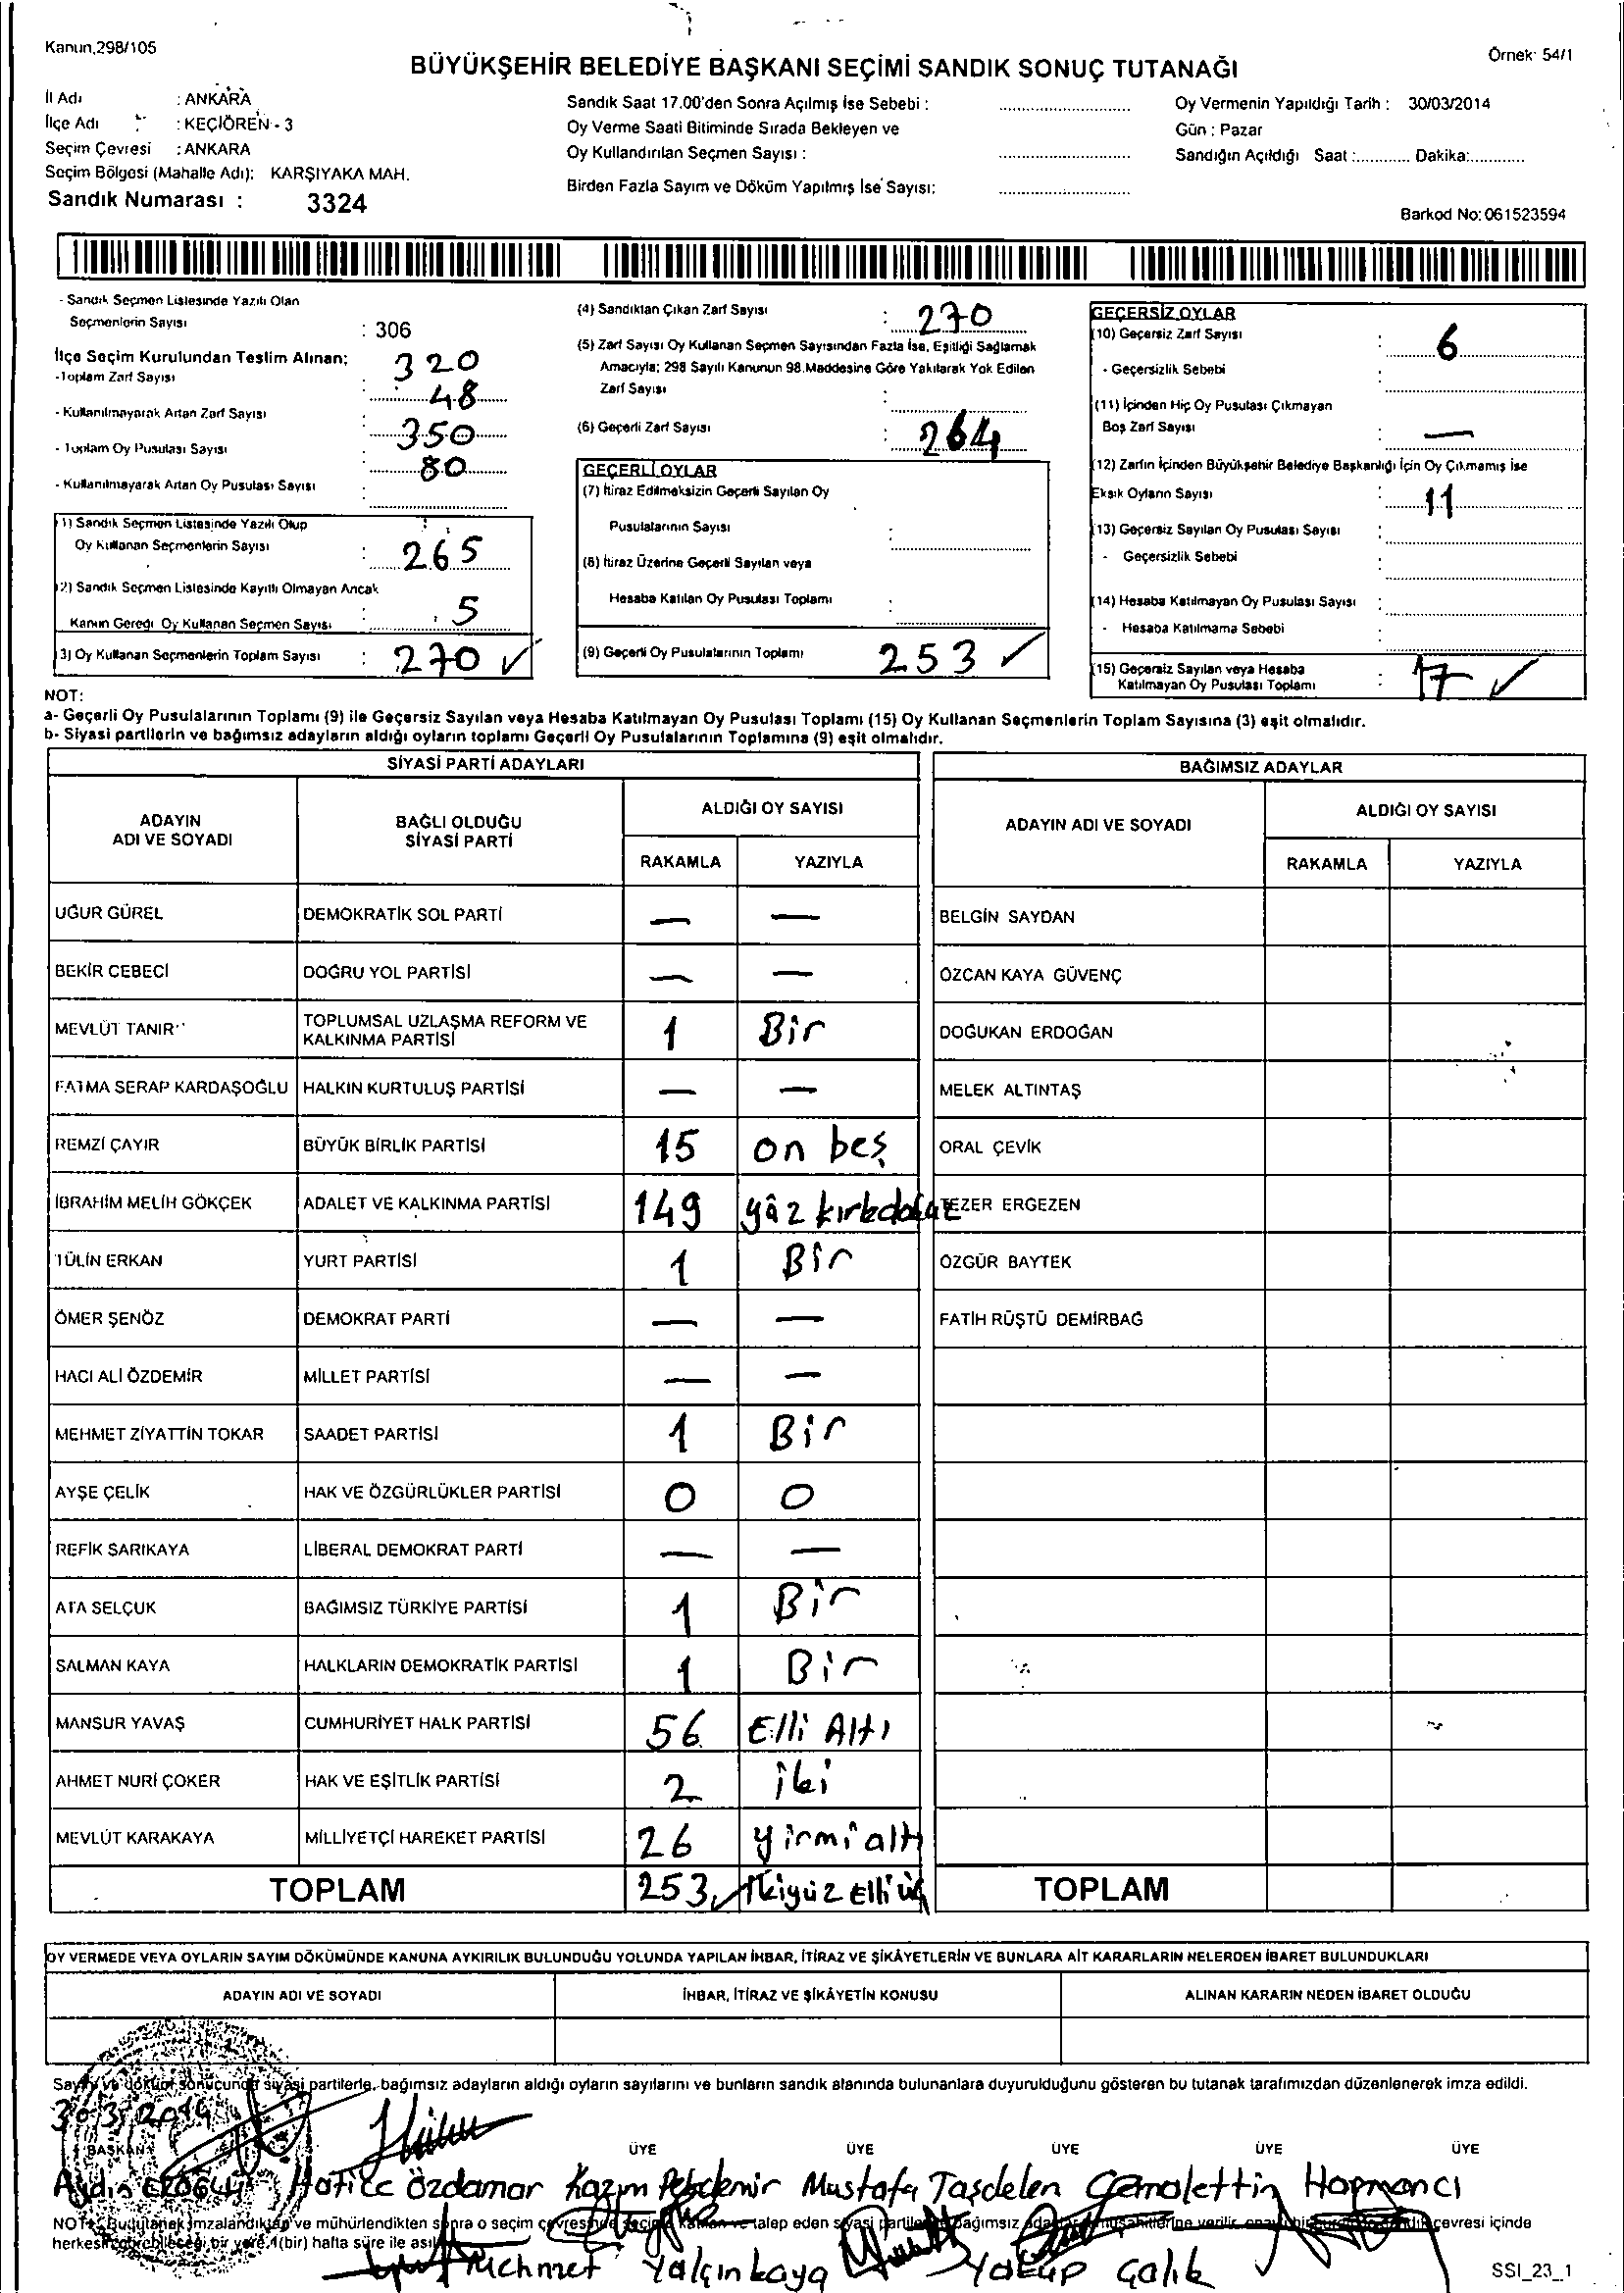 Kanun,298/105
Örnek 54/1
BÜYÜKŞEHİR BELEDİYE BAŞKANI SEÇİMİ SANDIK SONUÇ TUTANAĞI
İl Adı : ANKARA
İlçe Adı : KEÇİÖREN - 3
Seçim Çevresi : ANKARA
Seçim Bölgesi (Mahalle Adı): KARŞIYAKA MAH.
Sandık Numarası : 3324
Sandık Saat 17.00'den Sonra Açılmış İse Sebebi :
Oy Verme Saati Bitiminde Sırada Bekleyen ve
Oy Kullandırılan Seçmen Sayısı :
Birden Fazla Sayım ve Döküm Yapılmış İse Sayısı:
Oy Vermenin Yapıldığı Tarih : 30/03/2014
Gün : Pazar
Sandığın Açıldığı Saat :............ Dakika:............
Barkod No: 061523594
- Sandık Seçmen Listesinde Yazılı Olan
Seçmenlerin Sayısı : 306
İlçe Seçim Kurulundan Teslim Alınan;
-Toplam Zarf Sayısı : 320
- Kullanılmayarak Artan Zarf Sayısı : 48
- Toplam Oy Pusulası Sayısı : 350
- Kullanılmayarak Artan Oy Pusulası Sayısı : 80
1) Sandık Seçmen Listesinde Yazılı Olup
Oy Kullanan Seçmenlerin Sayısı : 265
2) Sandık Seçmen Listesinde Kayıtlı Olmayan Ancak
Kanun Gereği Oy Kullanan Seçmen Sayısı : 5
3) Oy Kullanan Seçmenlerin Toplam Sayısı : 270 ✓
(4) Sandıktan Çıkan Zarf Sayısı : 270
(5) Zarf Sayısı Oy Kullanan Seçmen Sayısından Fazla İse, Eşitliği Sağlamak
Amacıyla; 298 Sayılı Kanunun 98.Maddesine Göre Yakılarak Yok Edilen
Zarf Sayısı :
(6) Geçerli Zarf Sayısı : 264
GEÇERLİ OYLAR
(7) İtiraz Edilmeksizin Geçerli Sayılan Oy
Pusulalarının Sayısı :
(8) İtiraz Üzerine Geçerli Sayılan veya
Hesaba Katılan Oy Pusulası Toplamı :
(9) Geçerli Oy Pusulalarının Toplamı 253 ✓
GEÇERSİZ OYLAR
(10) Geçersiz Zarf Sayısı : 6
- Geçersizlik Sebebi :
(11) İçinden Hiç Oy Pusulası Çıkmayan
Boş Zarf Sayısı : —
(12) Zarfın İçinden Büyükşehir Belediye Başkanlığı İçin Oy Çıkmamış İse
Eksik Oyların Sayısı : 11
(13) Geçersiz Sayılan Oy Pusulası Sayısı :
- Geçersizlik Sebebi :
(14) Hesaba Katılmayan Oy Pusulası Sayısı :
- Hesaba Katılmama Sebebi :
(15) Geçersiz Sayılan veya Hesaba
Katılmayan Oy Pusulası Toplamı : 17 ✓
NOT:
a- Geçerli Oy Pusulalarının Toplamı (9) ile Geçersiz Sayılan veya Hesaba Katılmayan Oy Pusulası Toplamı (15) Oy Kullanan Seçmenlerin Toplam Sayısına (3) eşit olmalıdır.
b- Siyasi partilerin ve bağımsız adayların aldığı oyların toplamı Geçerli Oy Pusulalarının Toplamına (9) eşit olmalıdır.
SİYASİ PARTİ ADAYLARI
ADAYIN ADI VE SOYADI BAĞLI OLDUĞU SİYASİ PARTİ ALDIĞI OY SAYISI
RAKAMLA YAZIYLA
UĞUR GÜREL DEMOKRATİK SOL PARTİ — —
BEKİR CEBECİ DOĞRU YOL PARTİSİ — —
MEVLÜT TANIR TOPLUMSAL UZLAŞMA REFORM VE KALKINMA PARTİSİ 1 Bir
FATMA SERAP KARDAŞOĞLU HALKIN KURTULUŞ PARTİSİ — —
REMZİ ÇAYIR BÜYÜK BİRLİK PARTİSİ 15 on beş
İBRAHİM MELİH GÖKÇEK ADALET VE KALKINMA PARTİSİ 149 yüz kırkdokuz
TÜLİN ERKAN YURT PARTİSİ 1 Bir
ÖMER ŞENÖZ DEMOKRAT PARTİ — —
HACI ALİ ÖZDEMİR MİLLET PARTİSİ — —
MEHMET ZİYATTİN TOKAR SAADET PARTİSİ 1 Bir
AYŞE ÇELİK HAK VE ÖZGÜRLÜKLER PARTİSİ 0 0
REFİK SARIKAYA LİBERAL DEMOKRAT PARTİ — —
ATA SELÇUK BAĞIMSIZ TÜRKİYE PARTİSİ 1 Bir
SALMAN KAYA HALKLARIN DEMOKRATİK PARTİSİ 1 Bir
MANSUR YAVAŞ CUMHURİYET HALK PARTİSİ 56 Elli Altı
AHMET NURİ ÇOKER HAK VE EŞİTLİK PARTİSİ 2 iki
MEVLÜT KARAKAYA MİLLİYETÇİ HAREKET PARTİSİ 26 yirmi altı
TOPLAM 253 ikiyüz elli üç
BAĞIMSIZ ADAYLAR
ADAYIN ADI VE SOYADI ALDIĞI OY SAYISI
RAKAMLA YAZIYLA
BELGİN SAYDAN
ÖZCAN KAYA GÜVENÇ
DOĞUKAN ERDOĞAN
MELEK ALTINTAŞ
ORAL ÇEVİK
TEZER ERGEZEN
ÖZGÜR BAYTEK
FATİH RÜŞTÜ DEMİRBAĞ
TOPLAM
OY VERMEDE VEYA OYLARIN SAYIM DÖKÜMÜNDE KANUNA AYKIRILIK BULUNDUĞU YOLUNDA YAPILAN İHBAR, İTİRAZ VE ŞİKÂYETLERİN VE BUNLARA AİT KARARLARIN NELERDEN İBARET BULUNDUKLARI
ADAYIN ADI VE SOYADI İHBAR, İTİRAZ VE ŞİKÂYETİN KONUSU ALINAN KARARIN NEDEN İBARET OLDUĞU
Sayım ve döküm sonucunda siyasi partilerle, bağımsız adayların aldığı oyların sayılarını ve bunların sandık alanında bulunanlara duyurulduğunu gösteren bu tutanak tarafımızdan düzenlenerek imza edildi.
30.3.2014
BAŞKAN ÜYE ÜYE ÜYE ÜYE ÜYE
Aydın Hatice Özdamar Kazım Mustafa Taşdelen Camalettin Harmancı
NOT: Bu tutanak imzalandıktan ve mühürlendikten sonra o seçim talep eden siyasi bağımsız çevresi içinde
herkesin görebileceği bir yere 1(bir) hafta süre ile
Mehmet Yalçınkaya Yakup Çalık
SSI_23_1